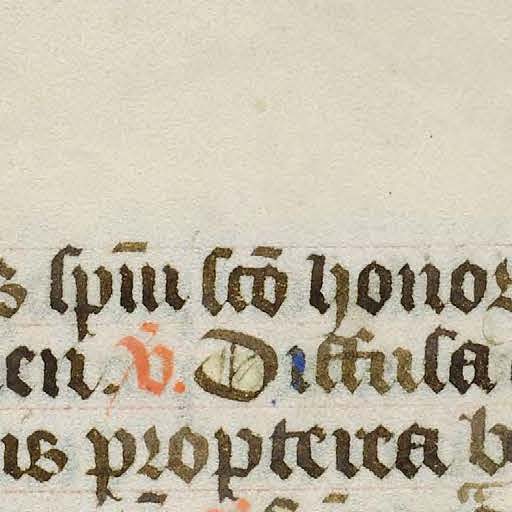 s sp̄m scō honor
en. V̄. Diffusa
us propterea b